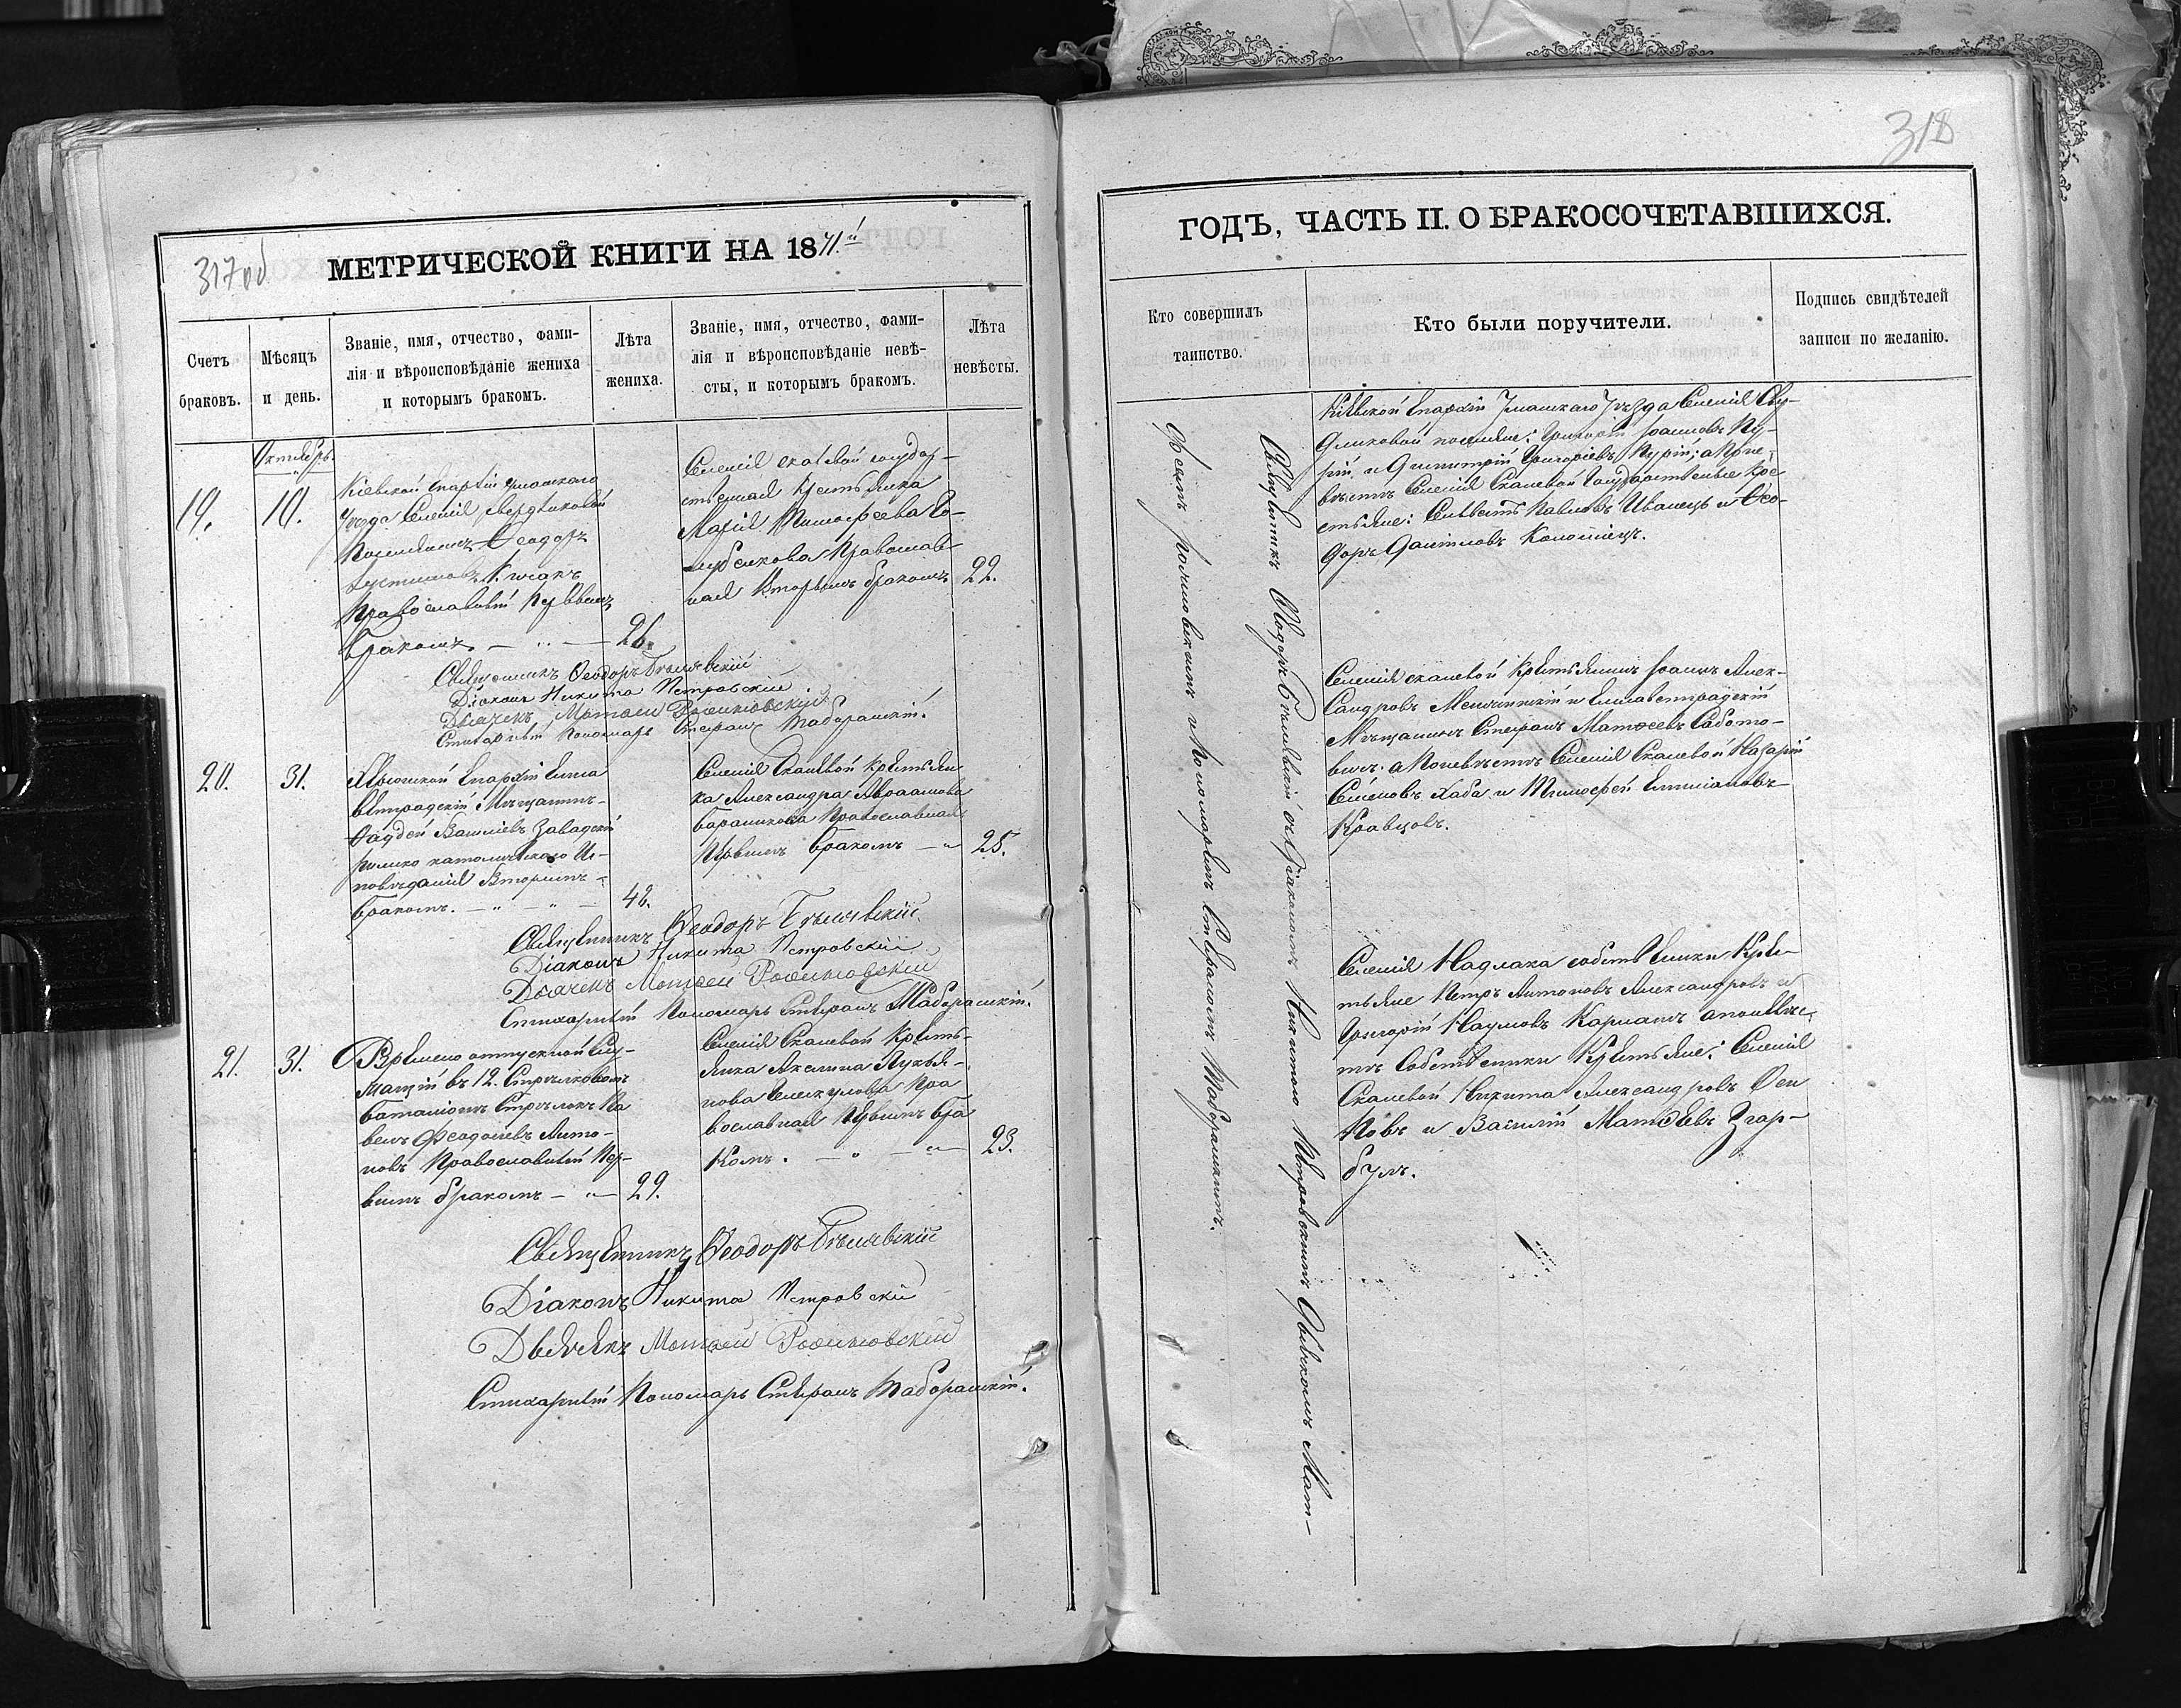 317 об
МЕТРИЧЕСКОЙ КНИГИ НА 1871.й
Счетъ
браковъ.
Мѣсяцъ
и день.
Званіе, имя, отчество, фами-
лія и вѣроисповѣданіе жениха
и которымъ бракомъ.
Лѣта
жениха.
Званіе, имя, отчество, фами-
лія и вѣроисповѣданіе невѣ-
сты, и которымъ бракомъ.
Лѣта
невѣсты.
Октябрь.
19.
10.
Кіевской Епархіи Уманскаго
Уѣзда Селенія
Поселянинъ Ѳеодоръ
Православный Первымъ
бракомъ — „ — 26.
Селенія Скалевой государ-
ственная Крестьянка
Марія Тимофеева Го-
лубенкова Православ-
ная Вторымъ бракомъ 22.
Священникъ Ѳеодоръ Бѣлявскій
Діаконъ Никита Петровскій
Дьячекъ Матѳей
Стихарный Пономарь Стефанъ Таборанскій.
20.
31.
Епархіи Елиса
ветградскій Мѣщанинъ
Фаддей Васильевъ Завадскій
римско католическаго Ис-
повѣданія Вторымъ
бракомъ. — „ — „ — 48.
Селенія Скалевой Крестьян
ка Александра Авраамова
Баранникова Православная
Первымъ бракомъ — „ 25.
Священникъ Ѳеодоръ Бѣлявскій
Діаконъ Никита Петровскій
Дьячекъ Матѳей
Стихарный Пономарь Стефанъ Таборанскій.
21.
31.
Временно отпускной Слу-
жащій въ 12. Стрѣлковомъ
баталіонѣ Стрѣлокъ Па
велъ Феодосіевъ Анто-
новъ Православный Пер-
вымъ бракомъ — „ — 29.
Селенія Скалевой Крестьян-
янка Акелина Лукья-
нова Пра
вославная Первымъ бра
комъ. — „ — „ — 23.
Священникъ Ѳеодоръ Бѣлявскій
Діаконъ Никита Петровскій
Дьячекъ Матѳей
Стихарный Пономарь Стефанъ Таборанскій.
318
ГОДЪ, ЧАСТЬ II. О БРАКОСОЧЕТАВШИХСЯ.
Кто совершилъ
таинство.
Кто были поручители.
Подпись свидѣтелей
записи по желанію.
Священникъ Ѳеодоръ Бѣлявскій съ Діакономъ Никитою Петровскимъ Дьячкомъ Мат-
и Пономаремъ Стефаномъ Таборанскимъ.
Кіевской Епархіи Уманскаго Уѣзда Селенія
поселяне: Григорій Іоанновъ
и Димитрій Григоріевъ а По не-
вѣстѣ Селенія Скалевой Государственные Кре
стьяне: Сильвестъ Павловъ Иванецъ и Ѳео-
доръ Даниловъ Коломіецъ.
Селенія Скалевой Крестьянинъ Іоаннъ Алек-
сандровъ и Елисаветградскій
Мѣщанинъ Стефанъ Матѳеевъ
а По невѣстѣ Селенія Скалевой Назарій
Семеновъ Хаба и Тимофей
Кравцовъ.
Селенія Надлака собственники Кресть
яне Петръ Антоновъ Александровъ и
Григорій Наумовъ а по невѣс-
тѣ Собственники Крестьяне: Селенія
Скалевой Никита Александровъ Оси
повъ и Василій Матѳеевъ Згар-
буль.